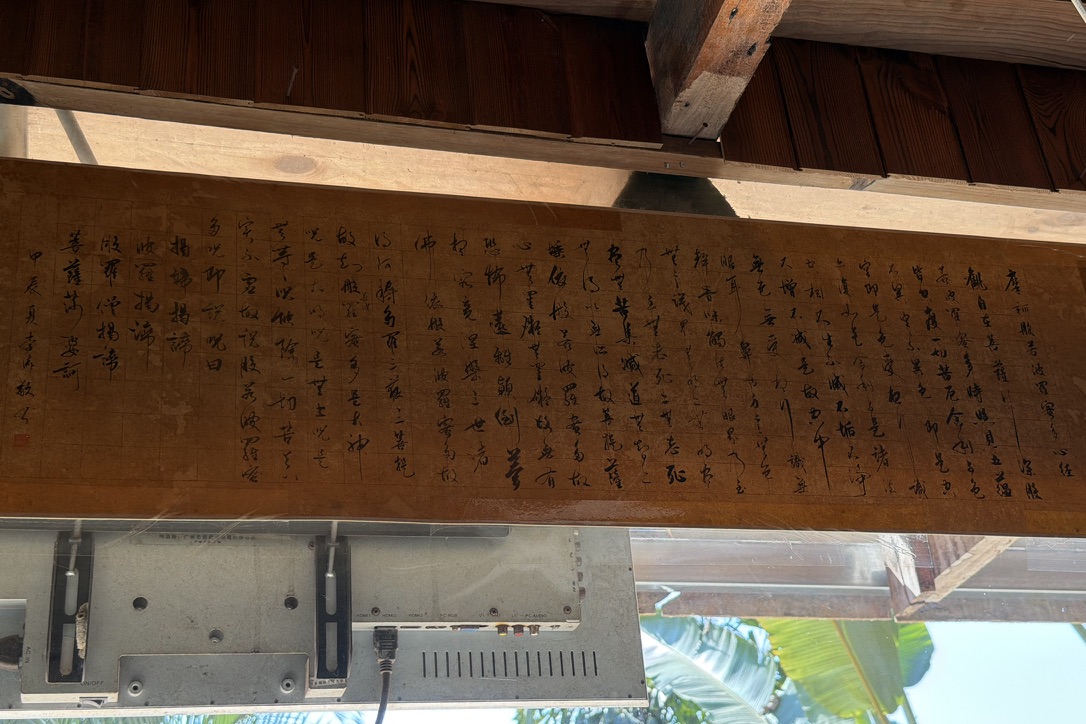 摩訶般若波羅蜜多心经
觀自在菩薩行深般
若波羅蜜多時照見五蘊
皆空度一切苦厄舍利子色
不異空空不異色色即是空
空即是色受想行識
亦復如是舍利子是諸法
空相不生不滅不垢不淨
不增不減是故空中
無色無受想行識無
眼耳鼻舌身意無色
聲香味觸法無眼界乃至
無意識界無無明亦無
乃至無老死亦無老死
盡無苦集滅道無智亦
無得以無所得故菩提薩
埵依般若波羅蜜多故
心無罣礙無罣礙故無有
恐怖遠離顛倒夢
想究竟涅槃三世諸
佛依般若波羅蜜多故
得阿耨多羅三藐三菩提
故知般若波羅蜜多是大神
咒是大明咒是無上咒是
無等等咒能除一切苦真
實不虛故說般若波羅蜜
多咒即說咒曰
揭諦揭諦
波羅揭諦
波羅僧揭諦
菩提薩婆訶
甲辰夏
HDMI1 HDMI2 PC-RGB PC-AUDIO
ON/OFF